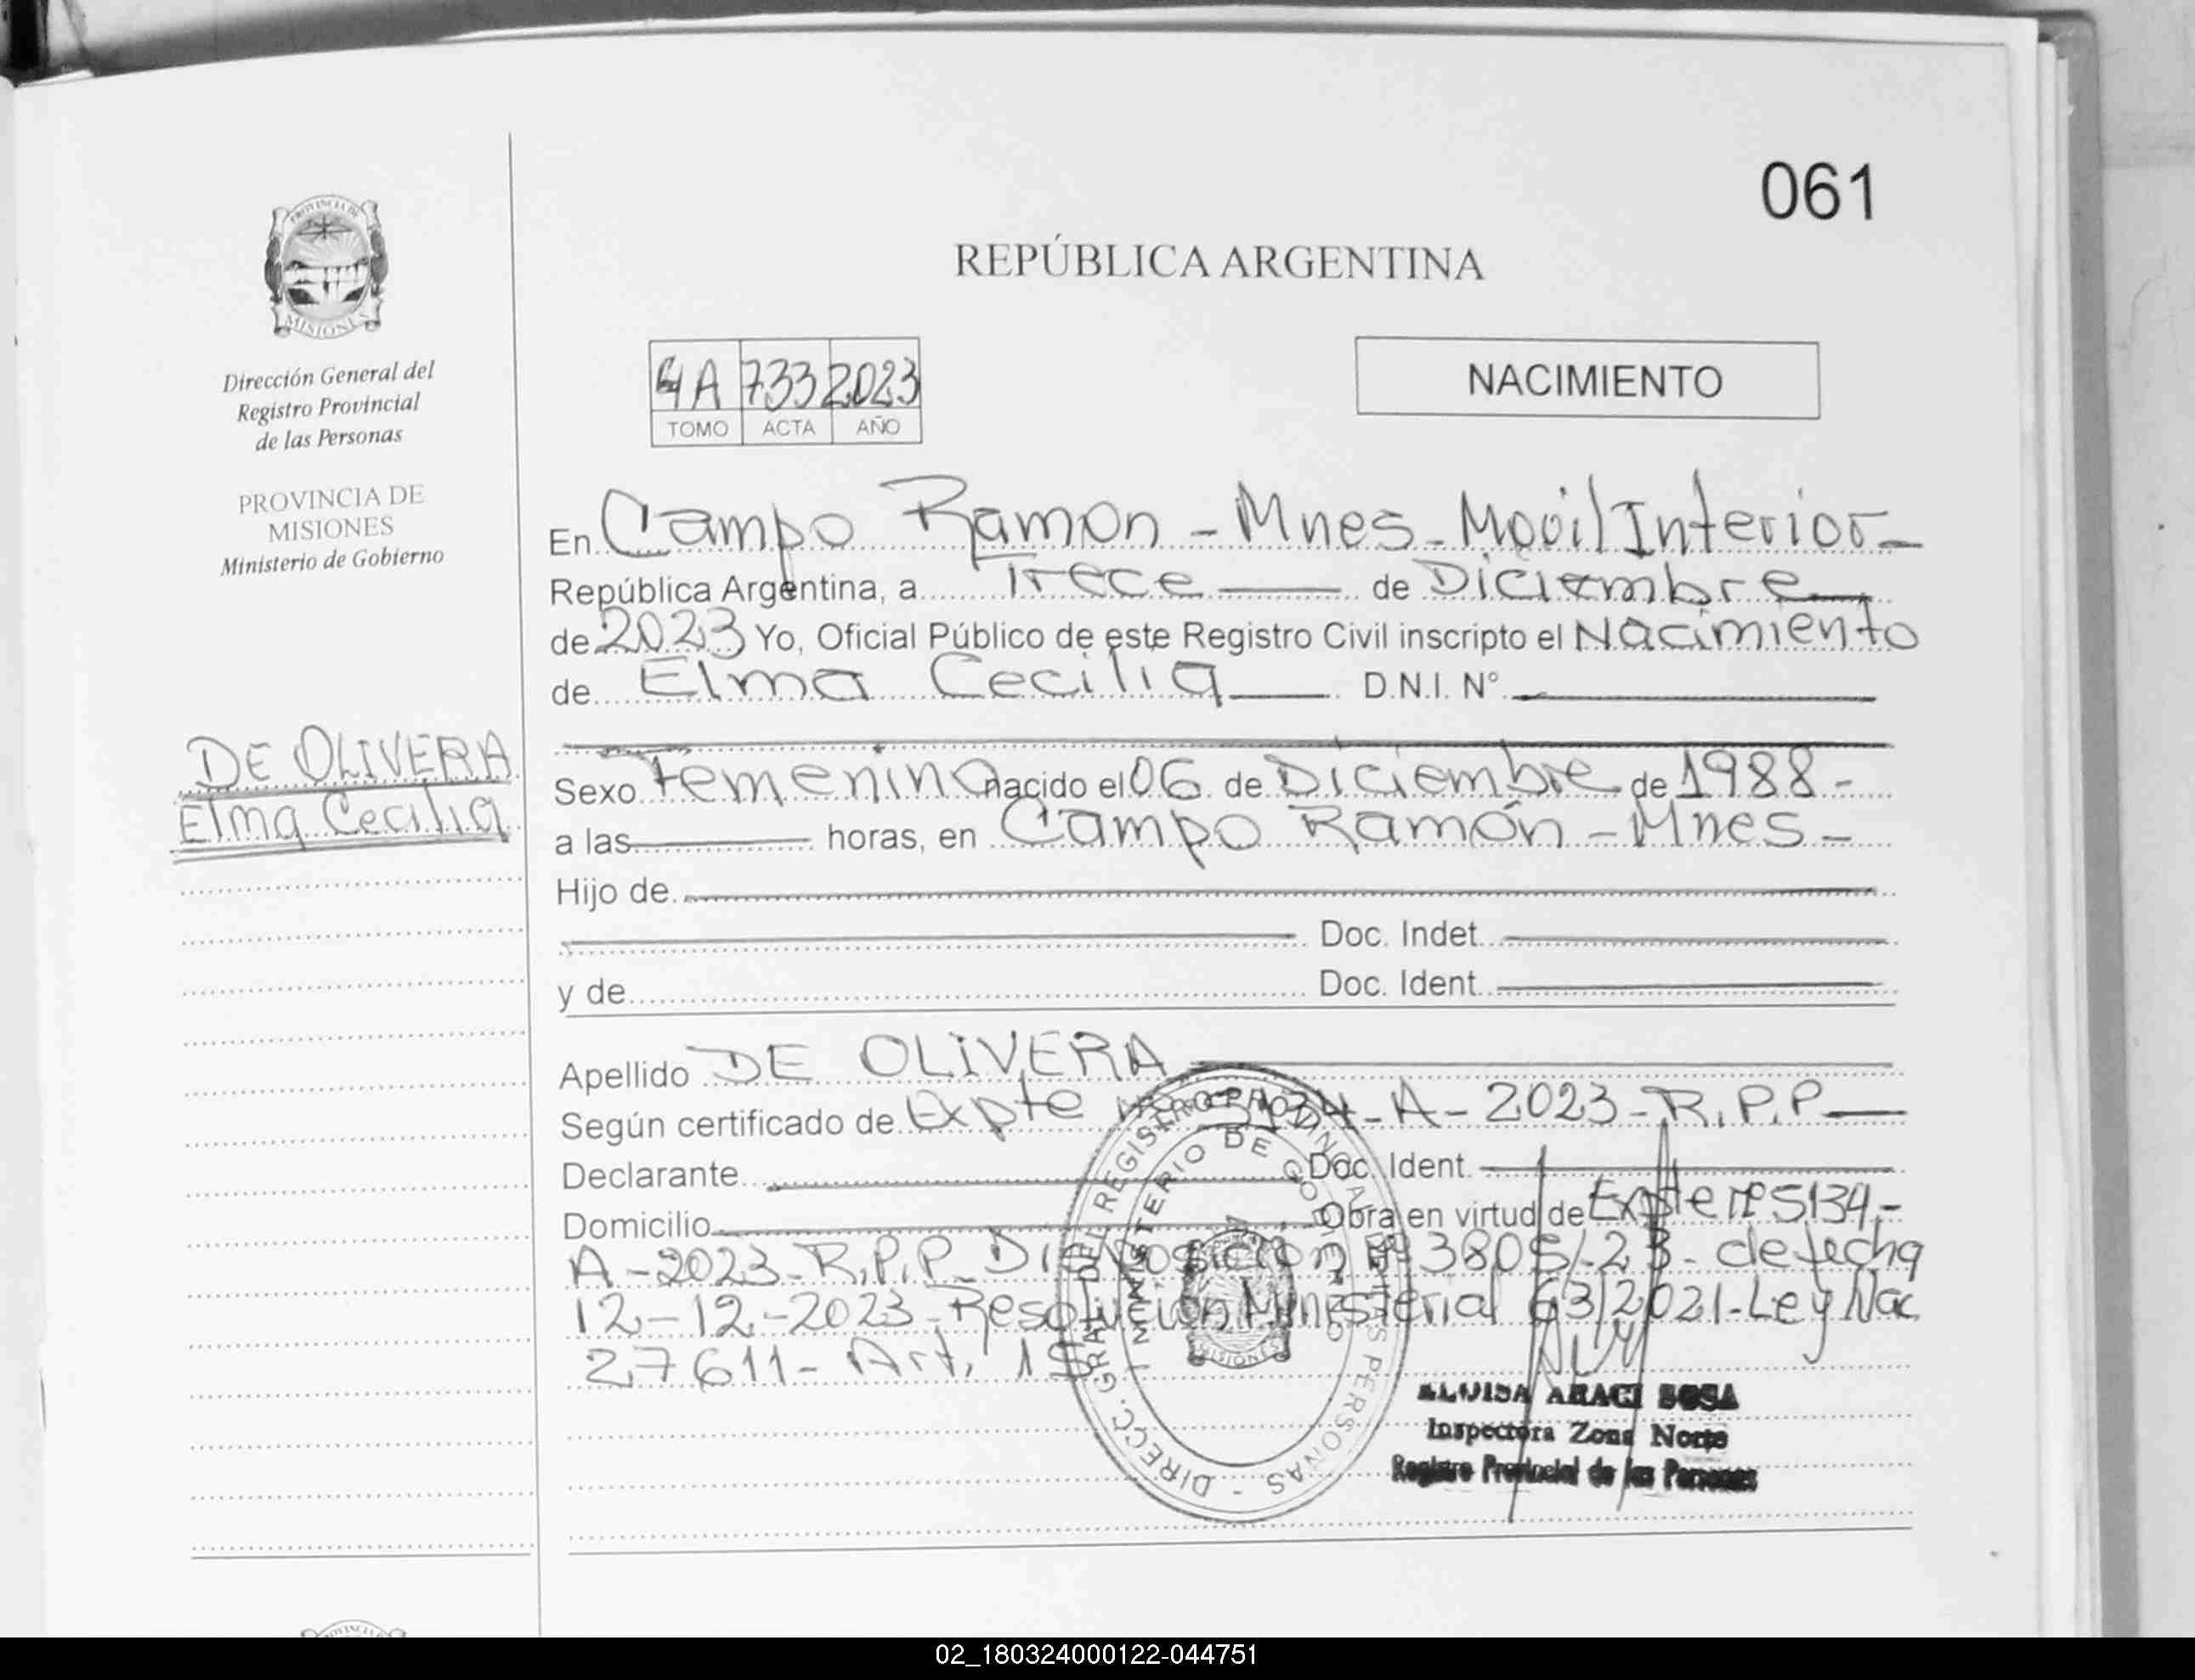 061
REPÚBLICA ARGENTINA
PROVINCIA DE
MISIONES
Dirección General del
Registro Provincial
de las Personas
PROVINCIA DE
MISIONES
Ministerio de Gobierno
DE OLIVERA
Elma Cecilia
4A 733 2023
TOMO ACTA AÑO
NACIMIENTO
En Campo Ramon - Mnes - Movil Interior -
República Argentina, a Trece de Diciembre
de 2023 Yo, Oficial Público de este Registro Civil inscripto el Nacimiento
de Elma Cecilia D.N.I. N°
Sexo Femenino nacido el 06 de Diciembre de 1988 -
a las horas, en Campo Ramón - Mnes -
Hijo de
Doc. Indet.
y de Doc. Ident.
Apellido DE OLIVERA
Según certificado de Expte 5134 - A - 2023 - R.P.P
Declarante Doc. Ident.
Domicilio Obra en virtud de Expte nº 5134 -
A - 2023 - R.P.P Disposición Nº 3805/23 - de fecha
12 - 12 - 2023 - Resolución Ministerial 63/2021 - Ley Nac
27611 - Art. 1
DIRECC. GRAL. DEL REGISTRO PROVINCIAL DE LAS PERSONAS -
MINISTERIO DE GOBIERNO
MISIONES
ARACI SOSA
Inspectora Zona Norte
Registro Provincial de las Personas
02_180324000122-044751